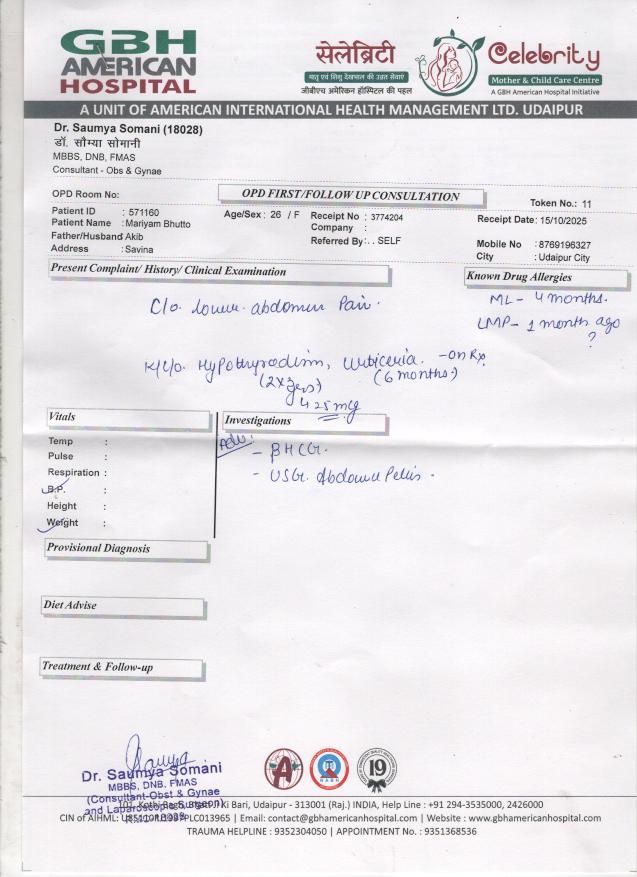 GBH
AMERICAN
HOSPITAL
सेलेब्रिटी
मातृ एवं शिशु देखभाल की उन्नत सेवाएं
जीबीएच अमेरिकन हॉस्पिटल की पहल
Celebrity
Mother & Child Care Centre
A GBH American Hospital Initiative
A UNIT OF AMERICAN INTERNATIONAL HEALTH MANAGEMENT LTD. UDAIPUR
Dr. Saumya Somani (18028)
डॉ. सौम्या सोमानी
MBBS, DNB, FMAS
Consultant - Obs & Gynae
OPD Room No:
OPD FIRST/FOLLOW UP CONSULTATION
Token No.: 11
Patient ID : 571160
Age/Sex : 26 / F
Receipt No : 3774204
Receipt Date: 15/10/2025
Patient Name : Mariyam Bhutto
Company :
Father/Husband Akib
Referred By: . . SELF
Mobile No : 8769196327
Address : Savina
City : Udaipur City
Present Complaint/ History/ Clinical Examination
Known Drug Allergies
C/o. lower abdomen Pain.
ML - 4 months.
LMP - 1 month ago
?
K/C/o. Hypothyrodism, Urticeria. - on Rx.
(6 months)
425 mcg
Vitals
Investigations
Temp :
Adv:
- BHCG.
Pulse :
- USG. Abdomen Pelvis.
Respiration :
B.P. :
Height :
Weight :
Provisional Diagnosis
Diet Advise
Treatment & Follow-up
Saumya
Dr. Saumya Somani
MBBS, DNB, FMAS
(Consultant-Obst & Gynae
and Laparoscopic Surgeon)
Ki Bari, Udaipur - 313001 (Raj.) INDIA, Help Line : +91 294-3535000, 2426000
CIN of AIHML: PLC013965 | Email: contact@gbhamericanhospital.com | Website : www.gbhamericanhospital.com
TRAUMA HELPLINE : 9352304050 | APPOINTMENT No. : 9351368536